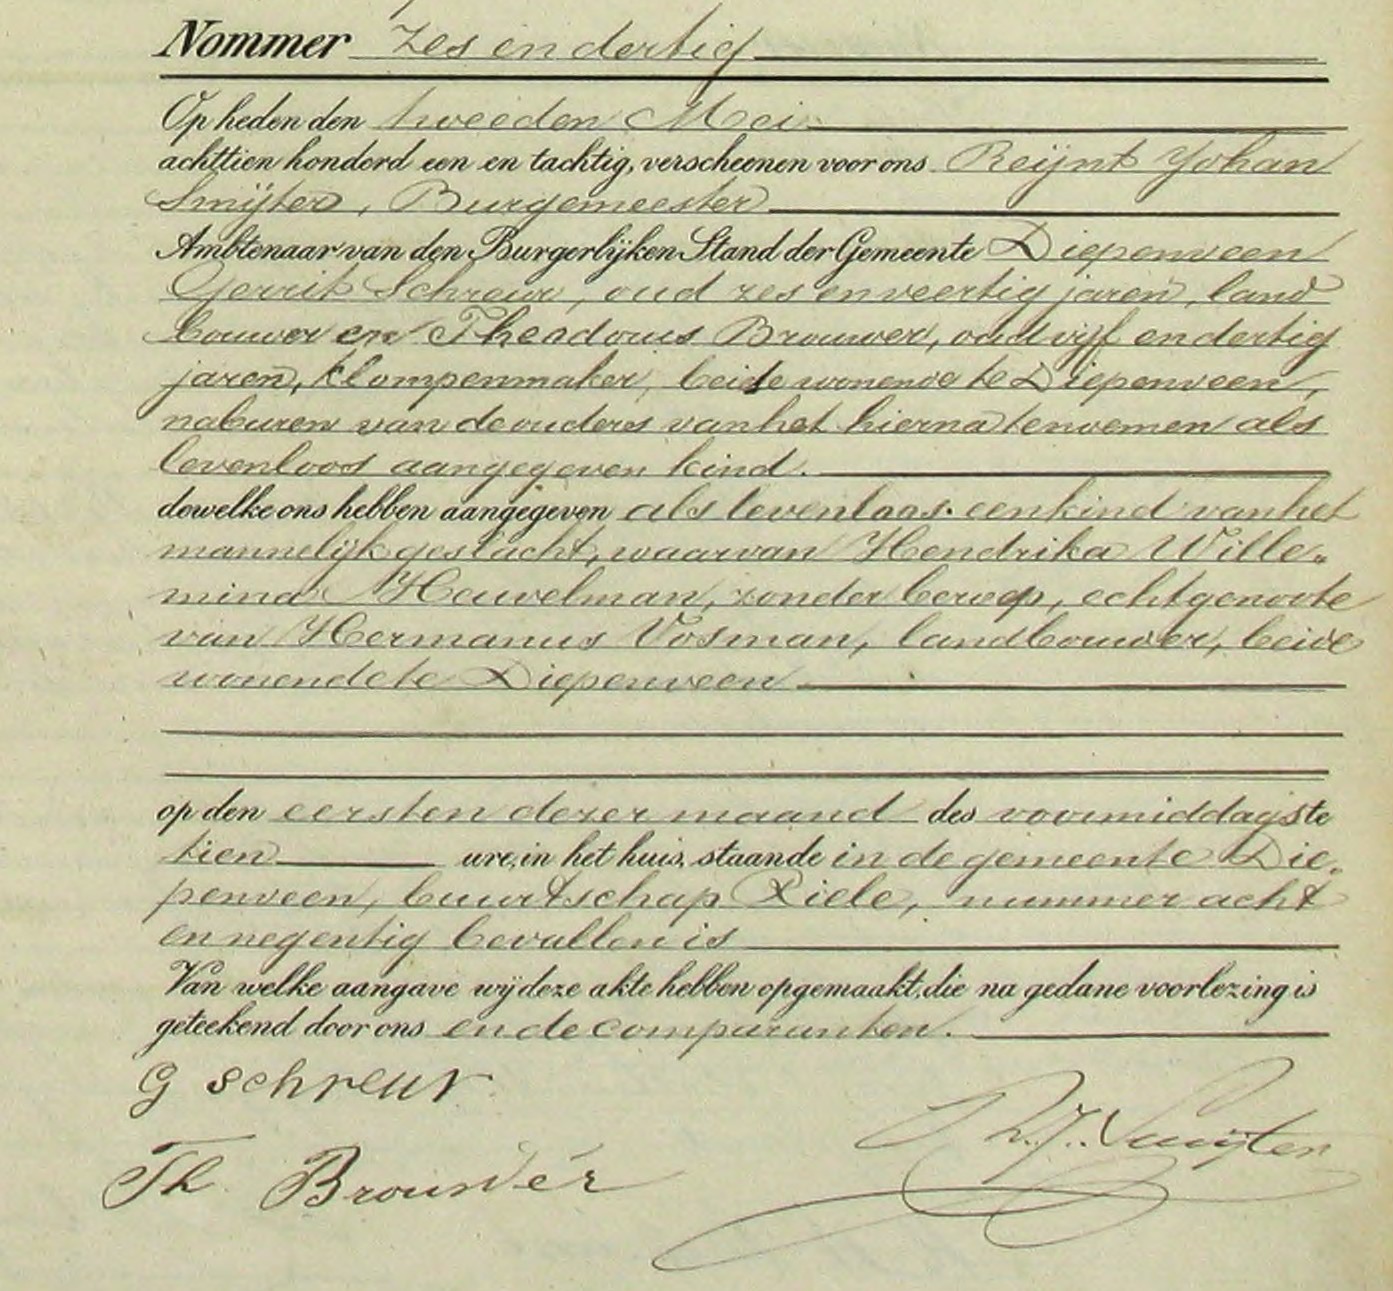 Nommer zes en dertig
Op heden den tweeden Mei
achttien honderd een en tachtig, verscheenen voor ons Reijnt Johan
Smijter, Burgemeester
Ambtenaar van den Burgerlijken Stand der Gemeente Diepenveen
Gerrit Schreur, oud zes en veertig jaren, land
bouwer en Theodorus Brouwer, oud vijf en dertig
jaren, klompenmaker, beide wonende te Diepenveen,
naburen van de ouders van het hierna te noemen als
levenloos aangegeven kind.
dewelke ons hebben aangegeven als levenloos een kind van het
mannelijk geslacht, waarvan Hendrika Wille„
mina Heuvelman, zonder beroep, echtgenoote
van Hermanus Vosman, landbouwer, beide
wonende te Diepenveen
op den eersten dezer maand des voormiddags te
tien ure, in het huis, staande in de gemeente Die„
penveen, buurtschap Riele, nummer acht
en negentig bevallen is
Van welke aangave wij deze akte hebben opgemaakt, die na gedane voorlezing is
geteekend door ons en de comparanten.
G schreur
R. J. Smijter
Th. Brouwer